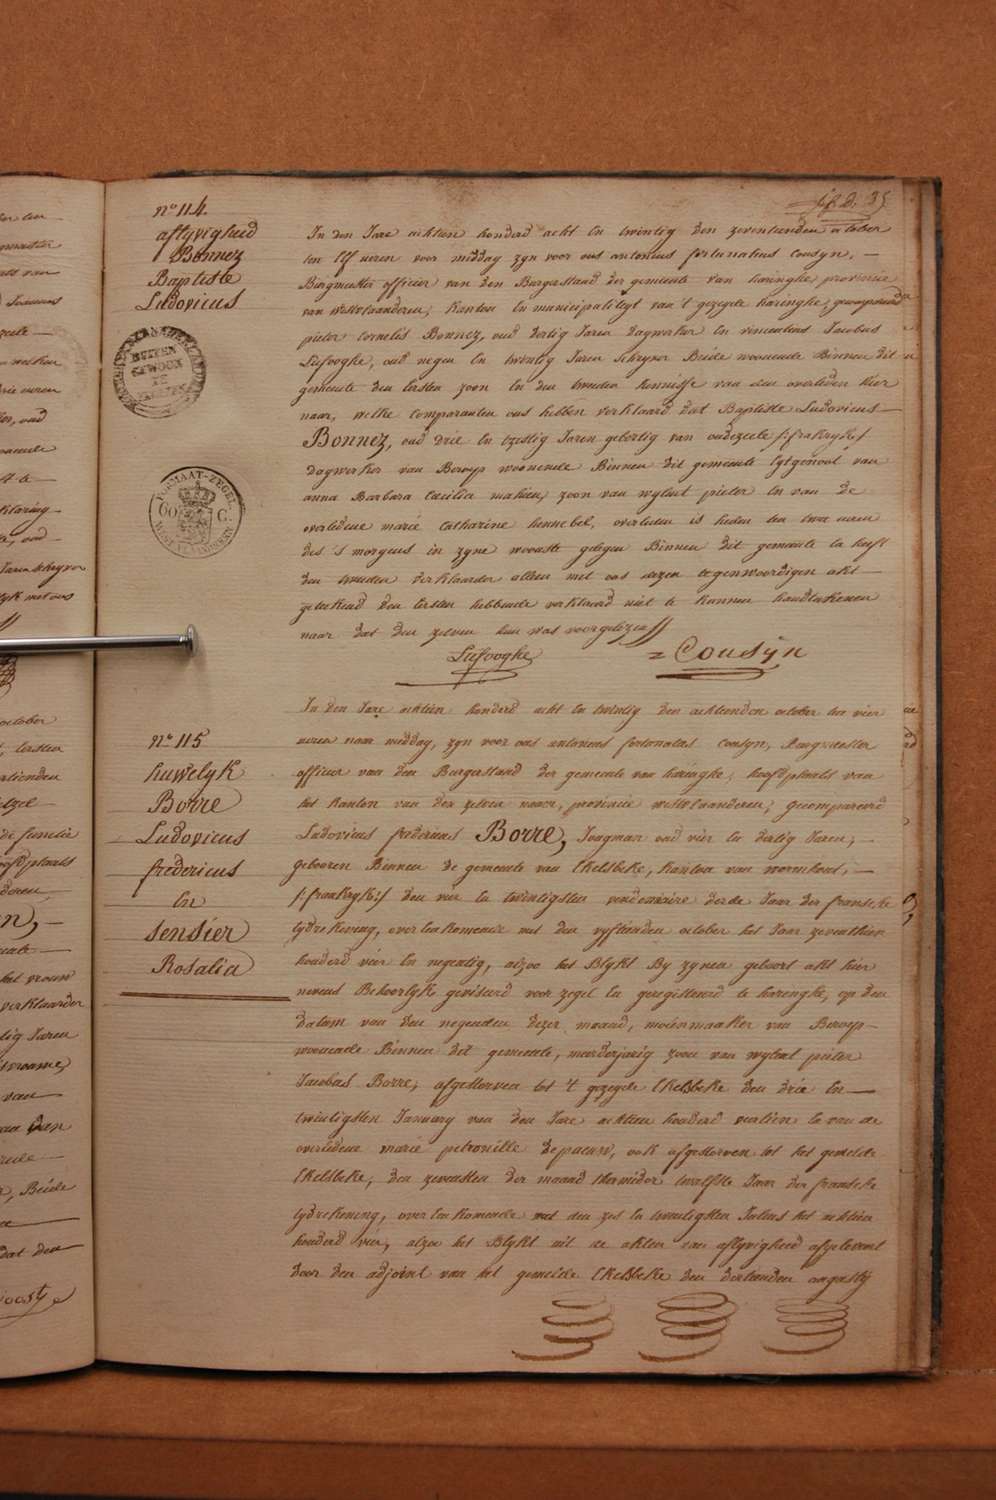 35
N° 114.
aflyvigheid
Bonnez
Baptiste
Ludovicus
BUITEN
GEWOON
FORMAAT-ZEGEL
60 C.
WEST-VLAANDEREN
In den Jare achtien honderd acht En twintig den zeventienden october
ten Elf ueren voor middag zyn voor ons antonius fortunatus Cousyn, —
Burgmeester officier van den Burgerstand der gemeente van haringhe provincie
van Westvlaanderen, Kanton En municipalityt van 't gezegde haringhe, gecompareerd
pieter Cornelis Bonnez, oud dertig Jaren dagwerker En vincentius Jacobus
Lefooghe, oud negen En twintig Jaren schryver Beide woonende Binnen dit
gemeente den Eersten zoon En den tweeden kennisse van den overleden hier
naar, welke comparanten ons hebben verklaard dat Baptiste Ludovicus —
Bonnez, oud drie En tzestig Jaren geboortig van oudezeele /:frakryk:/
dagwerker van Beroep woonende Binnen dit gemeente Egtgenoot van
anna Barbara Cecilia mahieu, zoon van wylent pieter En van de
overledene marie Catharine hennebel, overleden is heden ten twee ueren
des 's morgens in zyne woonste gelegen Binnen dit gemeente En heeft
den tweeden verklaarder alleen met ons dezen tegenwoordigen akt —
geteekend den Eersten hebbende verklaard niet te kunnen handteekenen
naar dat den zelven hun was voorgelezen
Lefooghe
Cousyn
N° 115
huwelyk
Borre
Ludovicus
fredericus
En
Sensier
Rosalia
In den Jare achtien honderd acht En twintig den achtienden october ten vier
ueren naar middag, zyn voor ons antonius fortunatus Cousyn, Burgmeester
officier van den Burgerstand der gemeente van haringhe, hoofdplaats van
het Kanton van den zelven naam, provincie westvlaanderen, gecompareerd
Ludovicus fredericus Borre, Jongman oud vier En dertig Jaren, —
gebooren Binnen de gemeente van Ekelsbeke, Kanton van wormhout, —
/:frankryk:/ den vier En twintigsten vendemiaire derde Jaar der fransche
tydrekening, overEenkomende met den vyftienden october het Jaar zeventhien
honderd vier En negentig, alzoo het Blykt By zynen geboort akt hier
nevens Behoorlyk geviseerd voor zegel En geregistreerd te haringhe, op den
datum van den negenden dezer maand, molenmaaker van Beroep —
woonende Binnen dit gemeente, meerderjarig zoon van wylent pieter
Jacobus Borre, afgestorven tot 't gezegde Ekelsbeke den drie En —
twintigsten January van den Jare achtien honderd veertien En van de
overledene marie petronille depaeuw, ook afgestorven tot het gemelde
Ekelsbeke, den zevensten der maand thermidor twalfste Jaar der fransche
tydrekening, overEenkomende met den zes En twintigsten Julius het achtien
honderd vier, alzoo het Blykt uit de akten van aflyvigheid afgelevert
door den adjoint van het gemelde Ekelsbeke den dertienden augusty